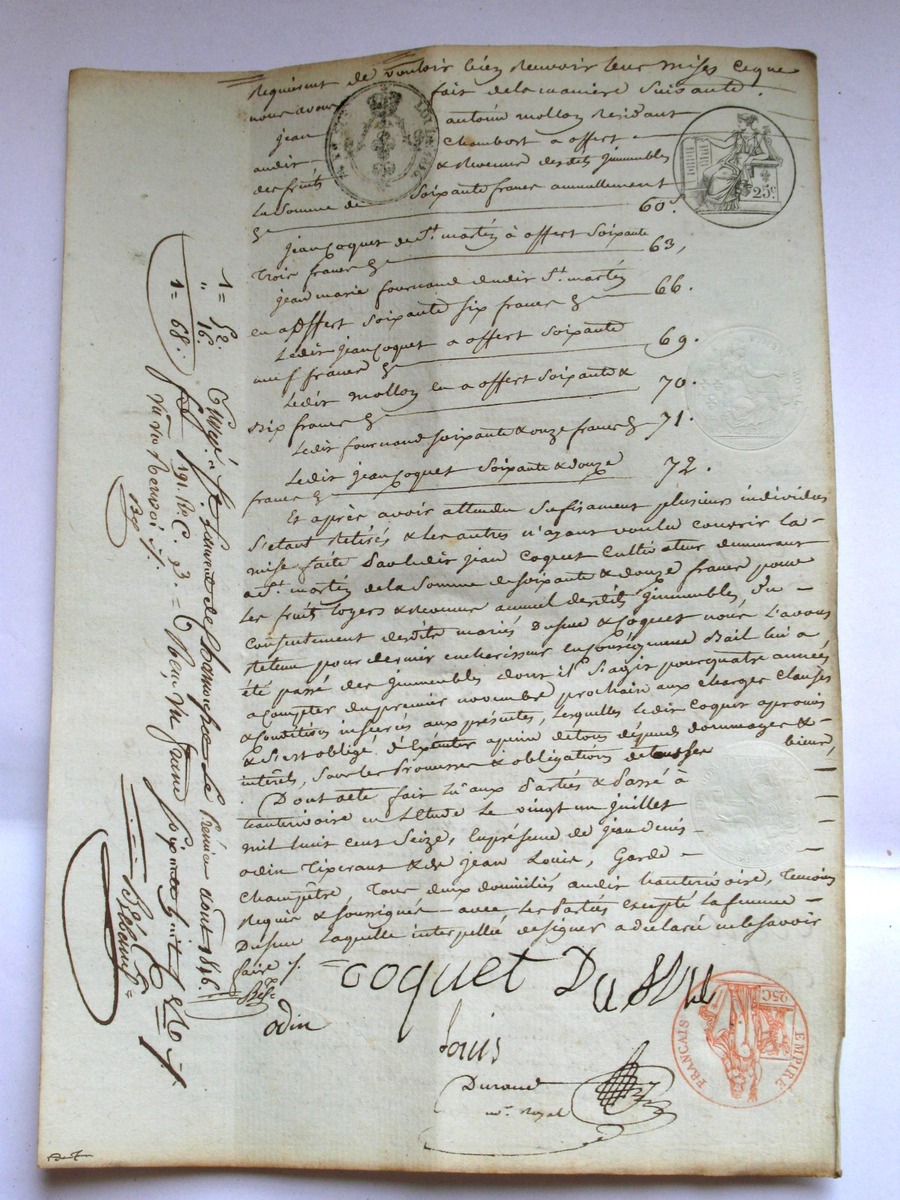 Requierent de vouloir bien recevoir leur mises ceque
nous avons fait dela maniere Suivante.
jean antoine mollon Residant
audit Chambost a offert
des fruits & Revenu desdits jmmeubles
La Somme de Soixante francs annuellement
60f.
jean Coquet de St. martin à offert Soixante
trois francs 63,
jean marie fournand dudit St. martin
en a offert Soixante Six francs 66.
Ledit jean Coquet a offert Soixante
neuf francs 69.
Ledit mollon en a offert Soixante &
dix francs 70.
Ledit fournand Soixante & onze francs 71.
Ledit jean Coquet Soixante & douze
francs 72.
Et après avoir attendu Sufisament plusieurs individus
S'etant Retirés & les autres n'ayant voulu couvrir la
mise faite Par ledit jean Coquet Cultivateur demeurant
a St. martin de la Somme de Soixante & douze francs pour
Les fruits Loyers & Revenu annuel desdits jmmeubles, Du
Consentement desdits mariés Dusrue & Coquet nous L'avons
Retenu pour dernier encherisseur en conséquence Bail lui a
été passé des jmmeubles dont il S'agit pour quatre années
a Compter du premier novembre prochain aux charges Clauses
& Conditions inserées aux présentes, Lesquelles Ledit Coquet
& S'est obligé, d'Exécuter apeine de tous dépends dommages &
interets, Sous les Promesses & obligations de tous ses biens,
Dont acte fait Lu aux Parties & Passé à
hauterivoire en L'Etude Le vingt un juillet
mil huit cent Seize, En présence de jean denis
odin Tixerant & de jean Louis, Garde
Champêtre Tous deux domiciliés audit hauterivoire, Temoins
Requis & Soussignés avec Les Parties excepté La femme
Laquelle interpellée de Signer a declaré ne le Savoir
faire
Coquet
odin
Louis
Durand
nre. Royal
1 = 52.
" 16.
1 = 68.
Le Premier aout 1816.
Reçu Un franc
25c.
EMPIRE FRANCAIS
25C